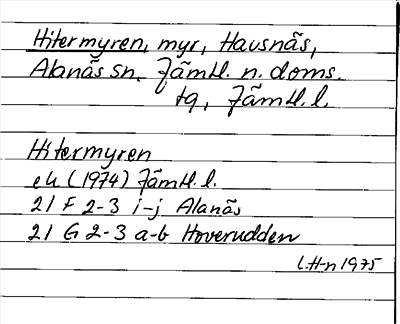 Hitermyren, myr, Havsnäs,
Alanäs sn. Jämtl. n. doms.
tg, Jämtl. l.
Hitermyren
ek (1974) Jämtl. l.
21 F 2-3 i-j Alanäs
21 G 2-3 a-b Hoverudden
L.H-n 1975